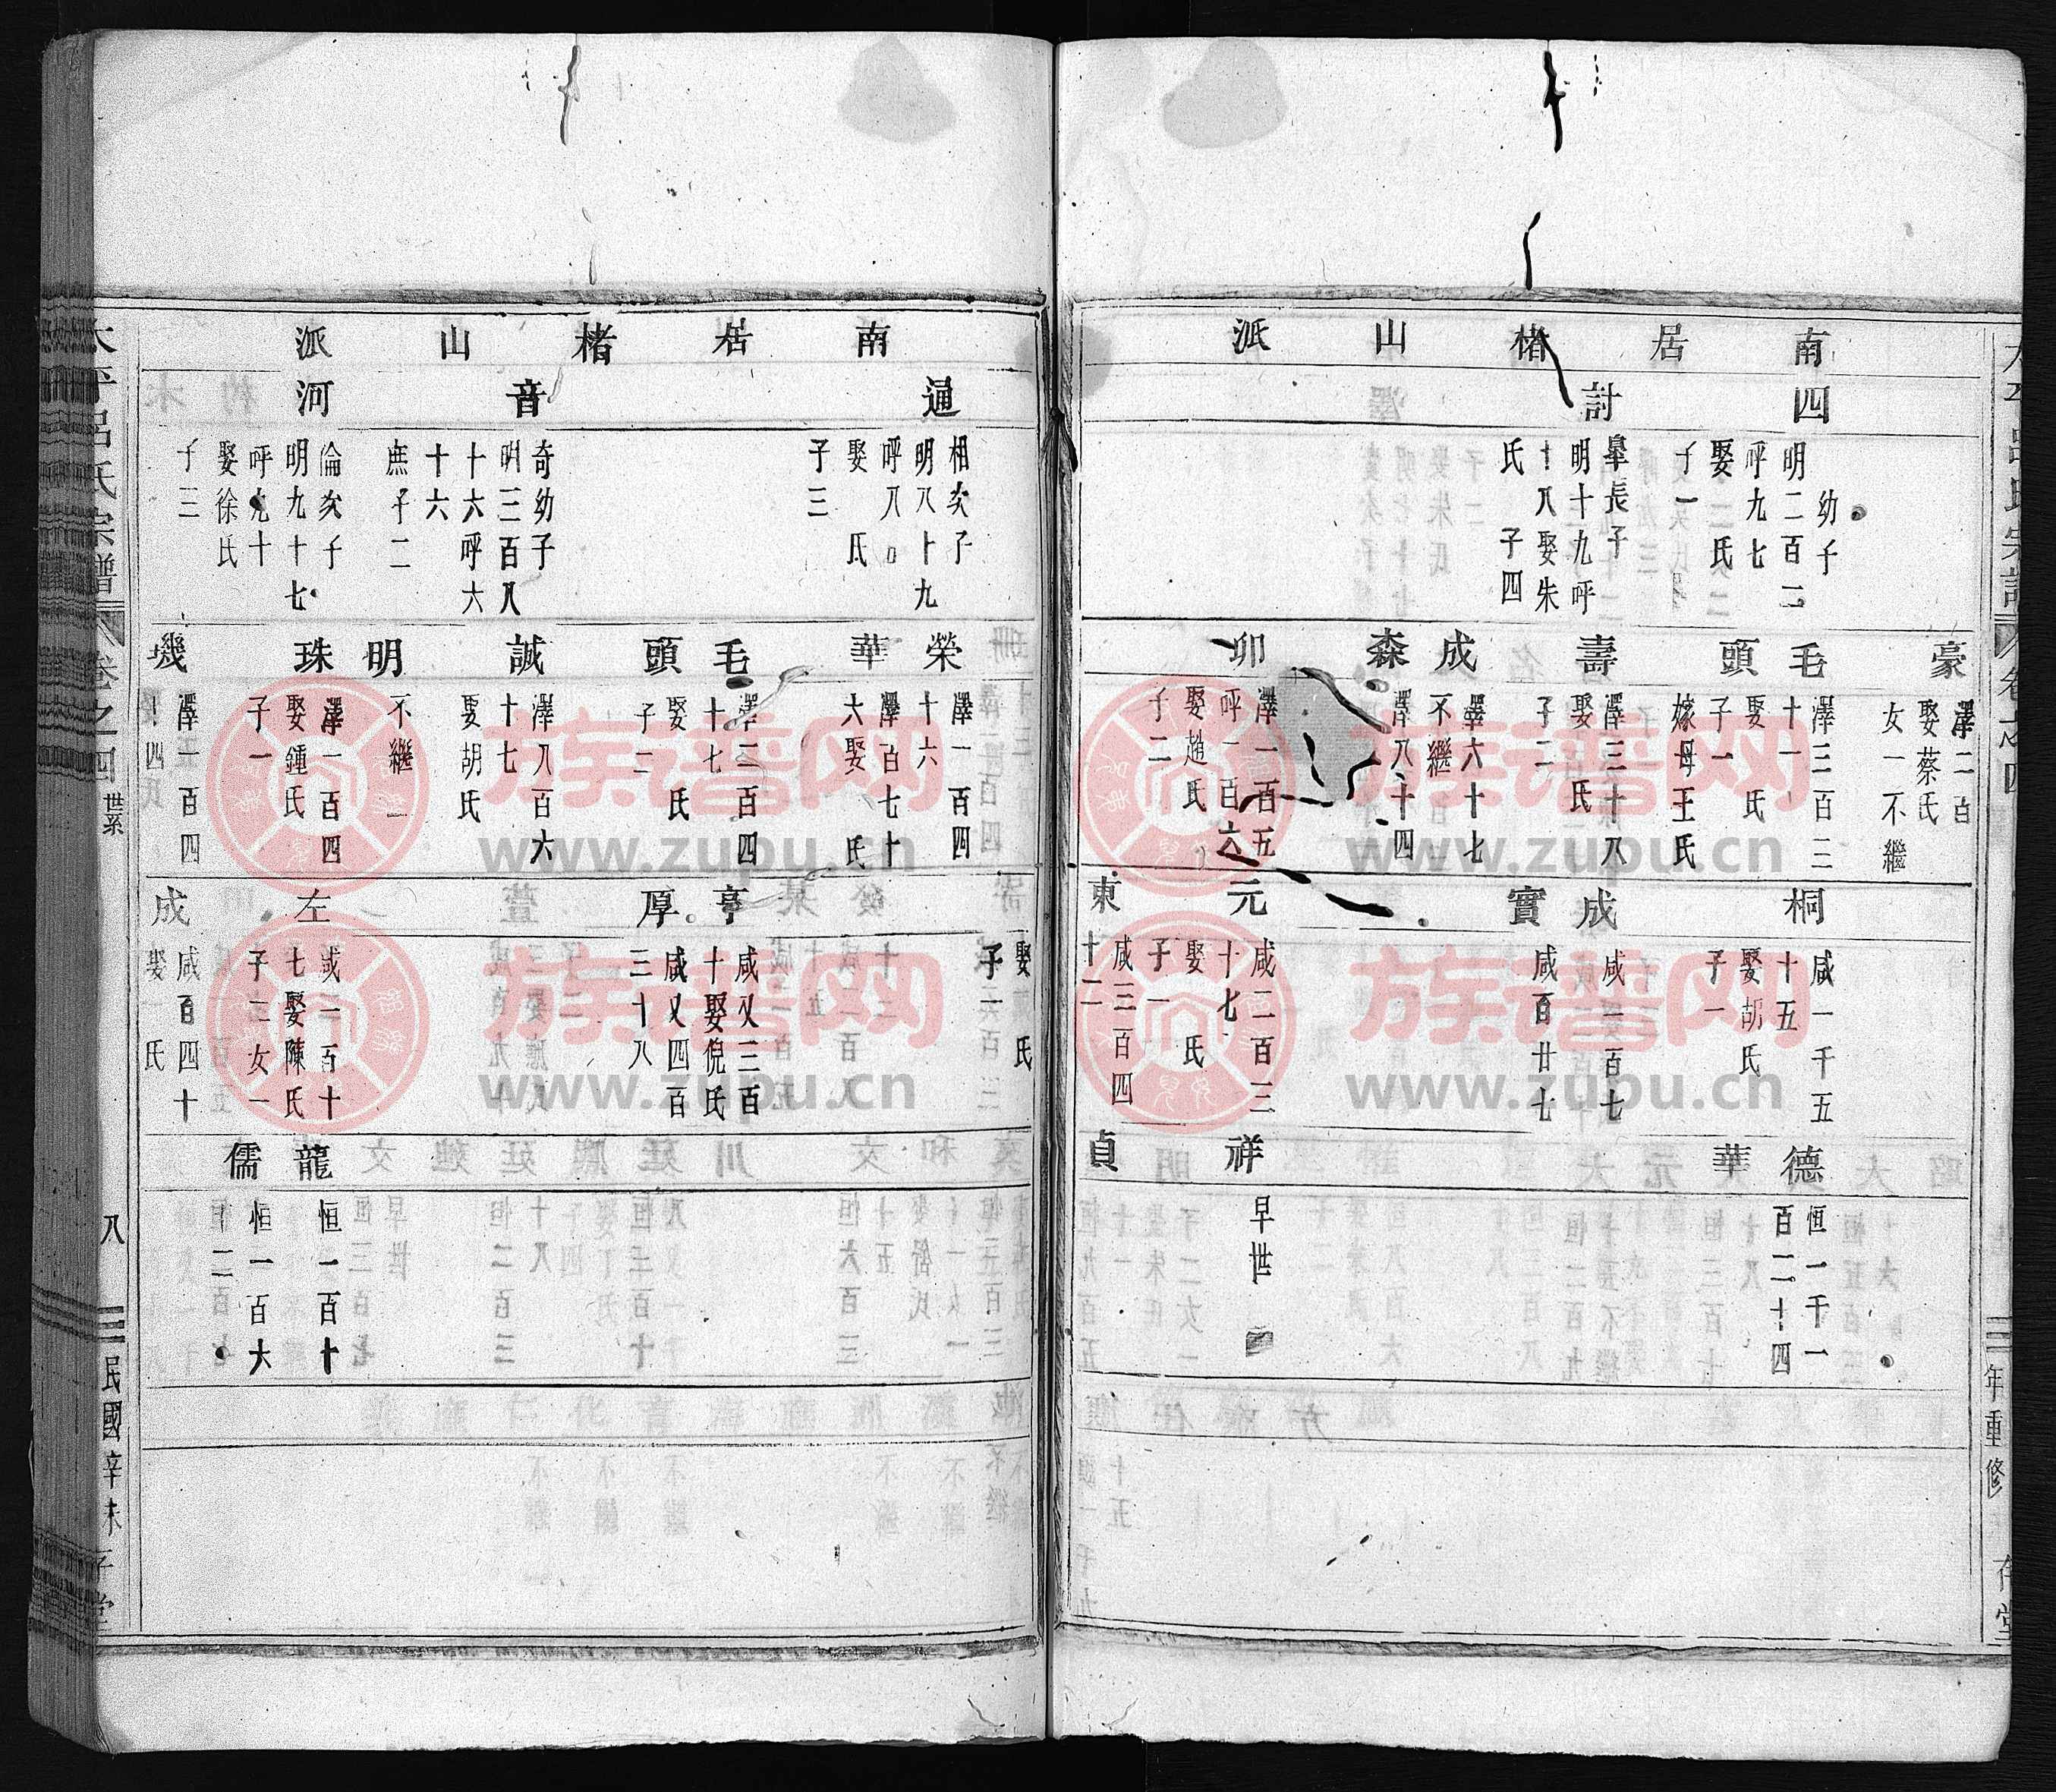 南居楮山派
四
幼子
明二百二
呼九七
娶 氏
子一
計
臯長子
明十九呼
十八娶朱
氏 子四
豪
澤二百
娶蔡氏
女一不繼
毛頭
澤三百三
十一
娶 氏
子一
嫁母王氏
壽
澤三十八
娶 氏
子二
成
澤六十七
不繼
森
澤八十四
卯
澤一百五
呼一百六
娶趙氏
子二
桐
咸一千五
十五
娶胡氏
子一
成
咸一百七
實
咸百廿七
元
咸二百三
十七
娶 氏
子一
東
咸三百四
十二
德
恒一千一
百二十四
華
祥
早世
貞
南居楮山派
通
相次子
明八十九
呼八
娶 氏
子三
音
奇幼子
明三百八
十六呼六
十六
庶子二
河
倫次子
明九十七
呼九十
娶徐氏
子三
榮
澤一百四
十六
華
澤百七十
六娶 氏
毛頭
澤二百四
十七
娶 氏
子二
誠
澤八百六
十七
娶胡氏
明
不繼
珠
澤一百四
娶鍾氏
子一
璣
澤一百四
十四
娶 氏
子二
亨
咸又三百
十娶倪氏
厚
咸又四百
三十八
左
咸一百十
七娶陳氏
子二女一
成
咸百四十
娶 氏
龍
恒一百十
儒
恒一百六
十二
太平呂氏宗譜
卷之四
世系
八
民國辛未
年重修